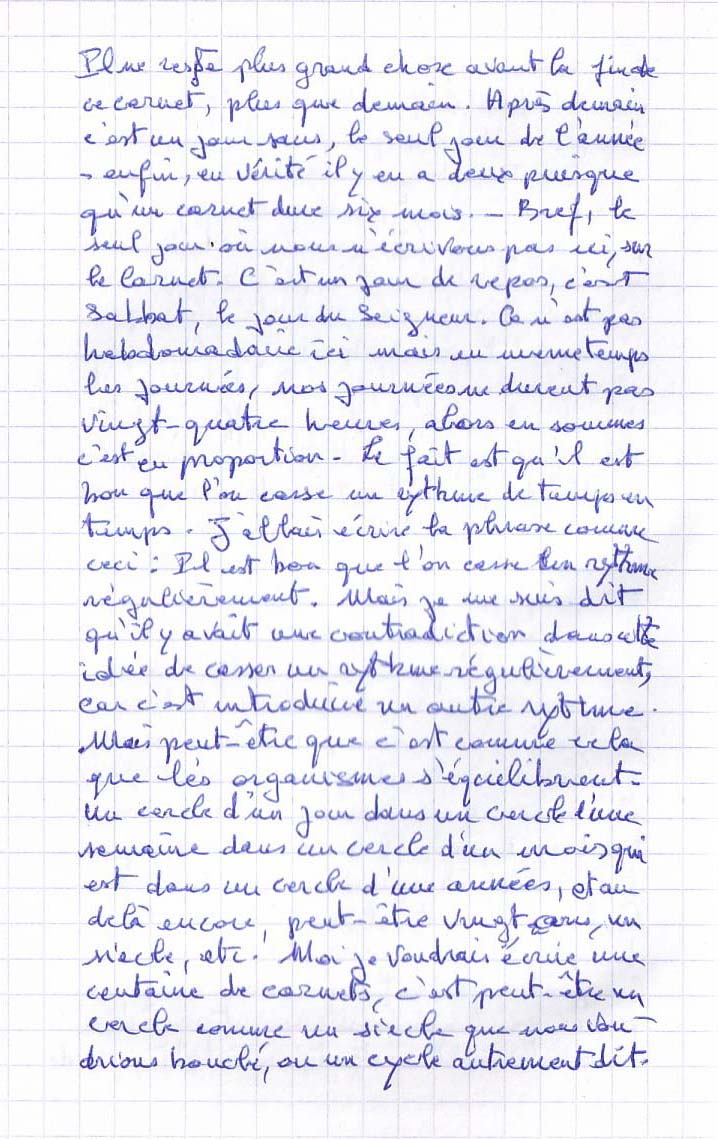 Il ne reste plus grand chose avant la fin de
ce carnet, plus que demain. Après demain
c'est un jour sans, le seul jour de l'année
- enfin, en vérité il y en a deux puisque
qu'un carnet dure six mois. - Bref, le
seul jour où nous n'écrivons pas ici, sur
le carnet. C'est un jour de repos, c'est
Sabbat, le jour du Seigneur. Ce n'est pas
hebdomadaire ici mais en même temps
les journées, nos journées ne durent pas
vingt-quatre heures, alors en sommes
c'est en proportion. Le fait est qu'il est
bon que l'on casse un rythme de temps en
temps. J'allais écrire la phrase comme
ceci : Il est bon que l'on casse un rythme
régulièrement. Mais je me suis dit
qu'il y avait une contradiction dans cette
idée de casser un rythme régulièrement,
car c'est introduire un autre rythme.
Mais peut-être que c'est comme cela
que les organismes s'équilibrent.
Un cercle d'un jour dans un cercle d'une
semaine dans un cercle d'un mois qui
est dans un cercle d'une années, et au
delà encore, peut-être vingt ans, un
siècle, etc. Moi je voudrais écrire une
centaine de carnets, c'est peut-être un
cercle comme un siècle que nous vou-
drions bouclé, ou un cycle autrement dit.